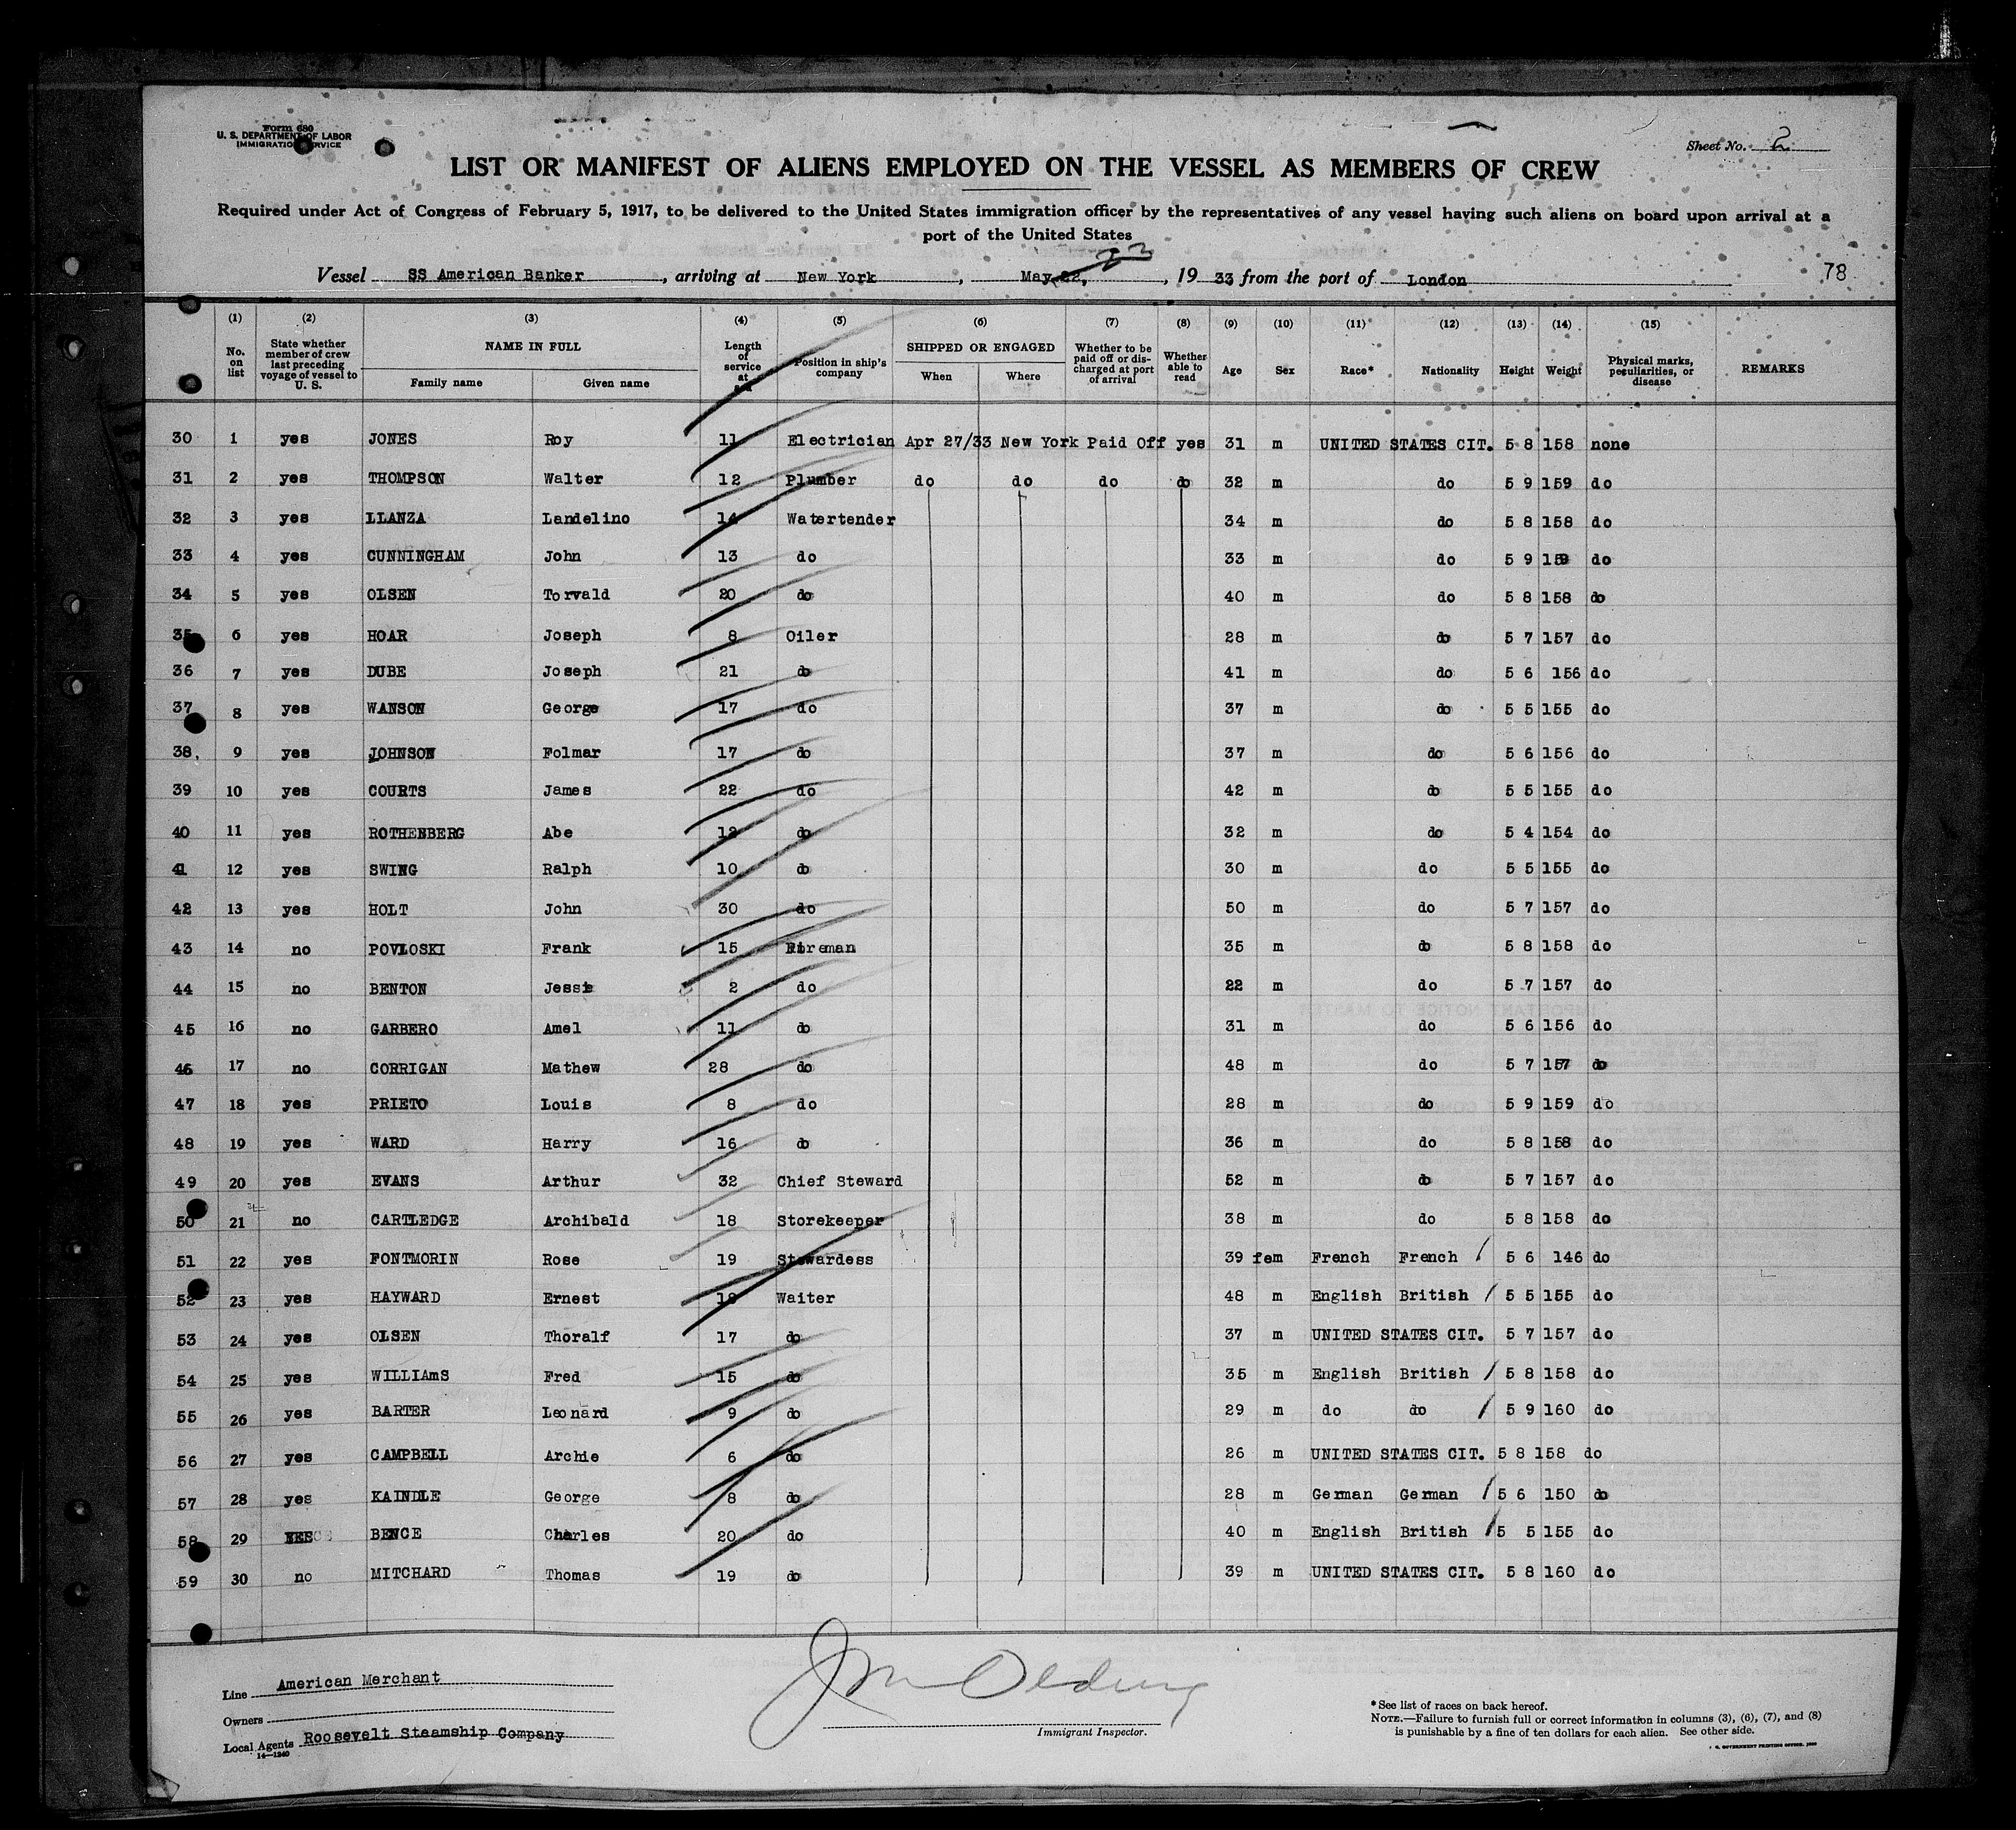 Form 680
U. S. DEPARTMENT OF LABOR
IMMIGRATION SERVICE
Sheet No. 2
LIST OR MANIFEST OF ALIENS EMPLOYED ON THE VESSEL AS MEMBERS OF CREW
Required under Act of Congress of February 5, 1917, to be delivered to the United States immigration officer by the representatives of any vessel having such aliens on board upon arrival at a
port of the United States
Vessel SS American Banker, arriving at New York, May 22, 23, 19 33 from the port of London
78
(1) (2) (3) (4) (5) (6) (7) (8) (9) (10) (11) (12) (13) (14) (15)
No. on list State whether member of crew last preceding voyage of vessel to U. S. NAME IN FULL Family name Given name Length of service at Position in ship's company SHIPPED OR ENGAGED When Where Whether to be paid off or discharged at port of arrival Whether able to read Age Sex Race* Nationality Height Weight Physical marks, peculiarities, or disease REMARKS
30 1 yes JONES Roy 11 Electrician Apr 27/33 New York Paid Off yes 31 m UNITED STATES CIT. 5 8 158 none
31 2 yes THOMPSON Walter 12 Plumber do do do do 32 m do 5 9 159 do
32 3 yes LLANZA Landelino 14 Watertender 34 m do 5 8 158 do
33 4 yes CUNNINGHAM John 13 do 33 m do 5 9 159 do
34 5 yes OLSEN Torvald 20 do 40 m do 5 8 158 do
35 6 yes HOAR Joseph 8 Oiler 28 m do 5 7 157 do
36 7 yes DUBE Joseph 21 do 41 m do 5 6 156 do
37 8 yes WANSON George 17 do 37 m do 5 5 155 do
38, 9 yes JOHNSON Folmar 17 do 37 m do 5 6 156 do
39 10 yes COURTS James 22 do 42 m do 5 5 155 do
40 11 yes ROTHENBERG Abe 12 do 32 m do 5 4 154 do
41 12 yes SWING Ralph 10 do 30 m do 5 5 155 do
42 13 yes HOLT John 30 do 50 m do 5 7 157 do
43 14 no POVLOSKI Frank 15 Fireman 35 m do 5 8 158 do
44 15 no BENTON Jessie 2 do 22 m do 5 7 157 do
45 16 no GARBERO Amel 11 do 31 m do 5 6 156 do
46 17 no CORRIGAN Mathew 28 do 48 m do 5 7 157 do
47 18 yes PRIETO Louis 8 do 28 m do 5 9 159 do
48 19 yes WARD Harry 16 do 36 m do 5 8 158 do
49 20 yes EVANS Arthur 32 Chief Steward 52 m do 5 7 157 do
50 21 no CARTLEDGE Archibald 18 Storekeeper 38 m do 5 8 158 do
51 22 yes FONTMORIN Rose 19 Stewardess 39 fem French French / 5 6 146 do
52 23 yes HAYWARD Ernest 18 Waiter 48 m English British / 5 5 155 do
53 24 yes OLSEN Thoralf 17 do 37 m UNITED STATES CIT. 5 7 157 do
54 25 yes WILLIAmS Fred 15 do 35 m English British / 5 8 158 do
55 26 yes BARTER Leonard 9 do 29 m do do / 5 9 160 do
56 27 yes CAMPBELL Archie 6 do 26 m UNITED STATES CIT. 5 8 158 do
57 28 yes KAINDLE George 8 do 28 m German German / 5 6 150 do
58 29 YES BENCE Charles 20 do 40 m English British / 5 5 155 do
59 30 no MITCHARD Thomas 19 do 39 m UNITED STATES CIT. 5 8 160 do
Line American Merchant
Owners
Local Agents Roosevelt Steamship Company
14—1240
Immigrant Inspector.
*See list of races on back hereof.
NOTE.—Failure to furnish full or correct information in columns (3), (6), (7), and (8)
is punishable by a fine of ten dollars for each alien. See other side.
U. S. GOVERNMENT PRINTING OFFICE